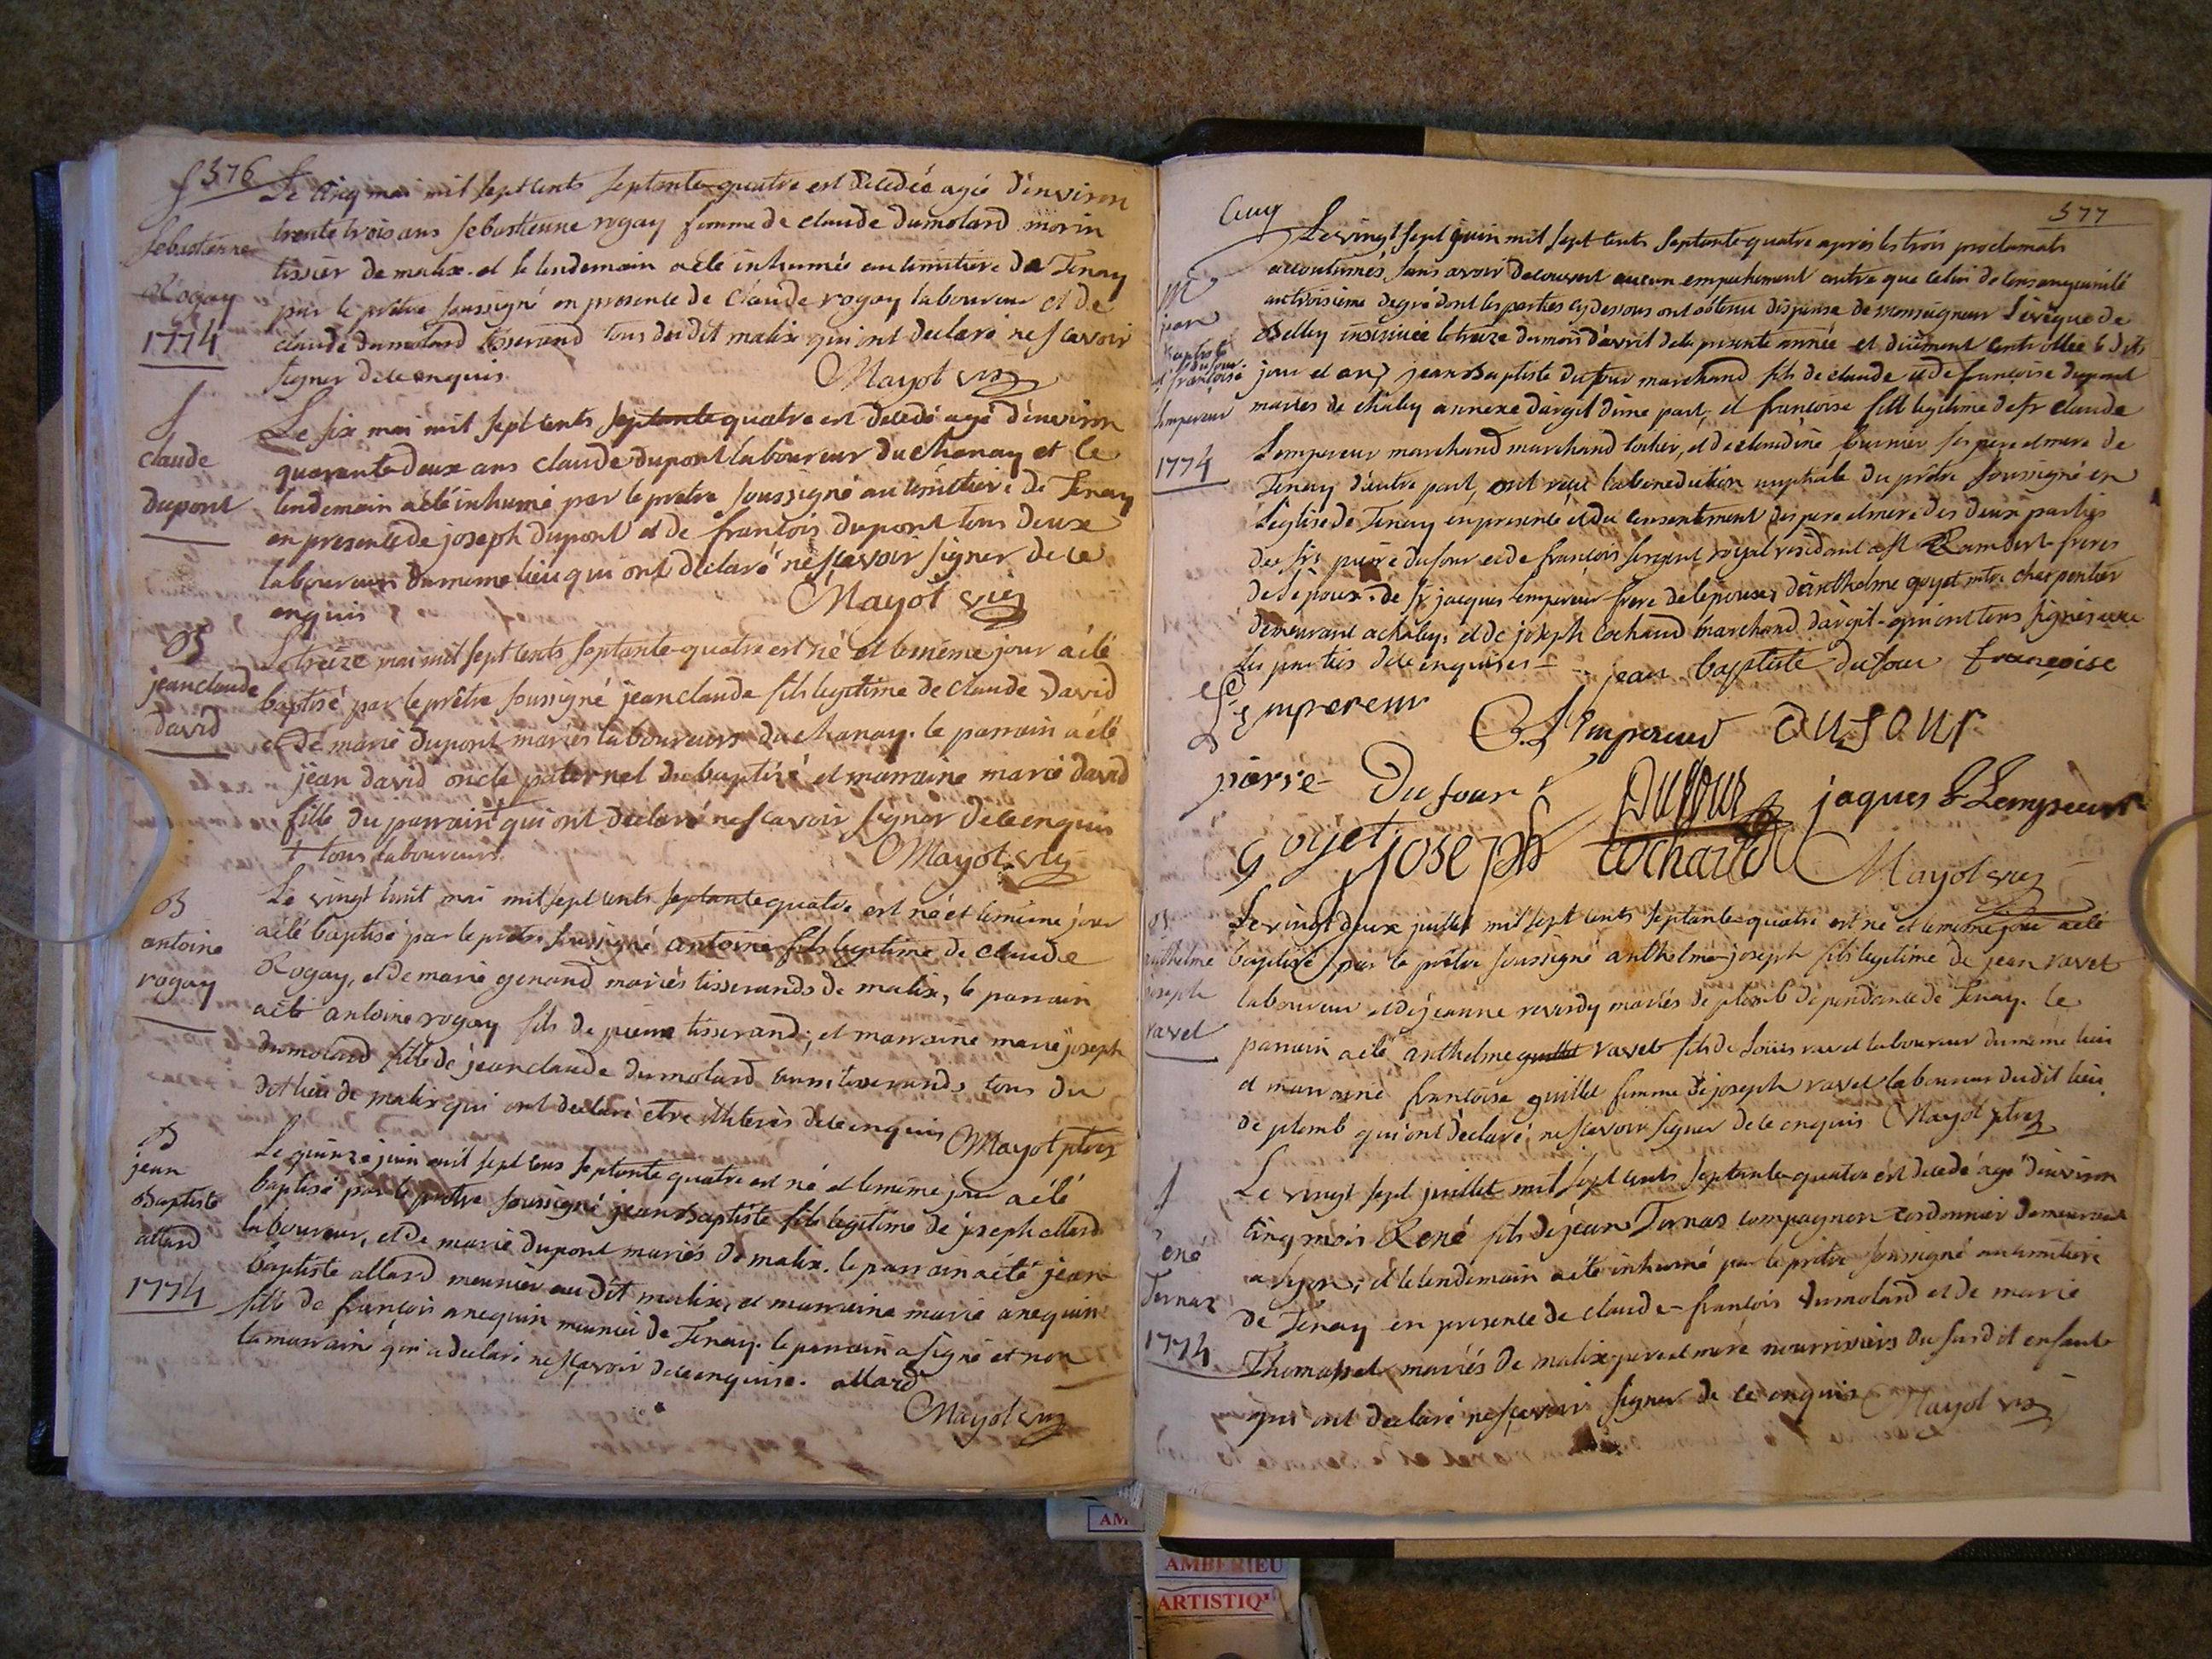 376
Le cinq mai mil sept cents septante-quatre est decedée agée d'environ
trente trois ans sebastienne rogay femme de claude dumolard morin
tissier de malix. et le lendemain a été inhumée au cimitiere de Tenay
par le prêtre soussigné en presence de claude rogay laboureur et de
claude dumolard tisserand tous dudit malix qui ont declaré ne scavoir
signer de ce enquis. Mayot vic
S
Sebastienne
Rogay
1774
Le six mai mil sept cents septante quatre est decedé agé d'environ
quarante deux ans claude dupont laboureur du chanay et le
lendemain a été inhumé par le prêtre soussigné au cimitiere de Tenay
en presence de joseph dupont et de francois dupont tous deux
laboureurs du meme lieu qui ont declaré ne scavoir signer de ce
enquis Mayot vic
S
claude
dupont
Le treize mai mil sept cents septante-quatre est né et le même jour a été
baptisé par le prêtre soussigné jean claude fils legitime de claude david
et de marie dupont mariés laboureurs du chanay. le parrain a été
jean david oncle paternel du baptisé et marraine marie david
fille du parrain qui ont declaré ne scavoir signer de ce enquis
+ tous laboureurs. Mayot vic
B
jean claude
david
Le vingt huit mai mil sept cents septante quatre est né et le même jour
a été baptisé par le prêtre soussigné antoine fils legitime de claude
Rogay, et de marie genand mariés tisserands de malix, le parrain
a été antoine rogay fils de pierre tisserand; et marraine marie joseph
dumolard fille de jean claude dumolard aussi tisserands tous du
dit lieu de malix qui ont declaré etre illiterés de ce enquis Mayot ptre
B
antoine
rogay
Le quinze juin mil sept cens septante quatre est né et le même jour a été
baptisé par le prêtre soussigné jean Baptiste fils legitime de joseph allard
laboureur, et de marie dupont mariés de malix. le parrain a été jean
baptiste allard meunier au dit malix, et marraine marie anequin
fille de francois anequin meunier de Tenay. le parrain a signé et non
la marraine qui a declaré ne scavoir de ce enquise. allard
Mayot vic
B
jean
Baptiste
allard
1774
377
Le vingt sept juin mil sept cents septante-quatre après les trois proclamats
accoutumés, sans avoir decouvert aucun empechement autre que celui de consanguinité
au troisieme degré dont les parties cy dessous ont obtenu dispense de monseigneur l'évèque de
Belley insinuée le treize du mois d'avril de la presente année et dûement controllée le dits
jour et an jean Baptiste dufour marchand fils de claude et de francoise dupont
mariés de chaley annexe d'argit d'une part, et francoise fille legitime de sr claude
Lempereur marchand marchand et de claudine ses pere et mere de
Tenay d'autre part, ont reçu la benediction nuptiale du prêtre soussigné en
l'eglise de Tenay en presence et du consentement des pere et mere des deux parties
des srs pierre dufour et de francois sergent royal residant a st Rambert freres
de l'epoux. de sr jacques lempereur frere de l'epouse, d'anthelme goyet mtre charpentier
demeurant a chaley, et de joseph cochaud marchand d'argit qui ont tous signés avec
les parties de ce enquises jean baptiste dufour françoise
Lempereur C. Lempereur DUFOUR
pierre Dufour DUFOUR jaques Lempereur
goyet joseph cochaud Mayot vic
jean
Baptiste
dufour
et françoise
Lempereur
1774
Le vingt deux juillet mil sept cents septante-quatre est né et le même jour a été
baptisé par le prêtre soussigné anthelme-joseph fils legitime de jean ravet
laboureur et de jeanne reverdy mariés de plomb dependance de Tenay. le
parrain a été anthelme guillet ravet fils de Louis ravet laboureur du même lieu
et marraine francoise guillet femme de joseph ravet laboureur du dit lieu
de plomb qui ont declaré ne scavoir signer de ce enquis Mayot ptre
B
anthelme
joseph
ravet
Le vingt sept juillet mil sept cents septante-quatre est decedé agé d'environ
cinq mois René fils de jean Ternas compagnon cordonnier demeurant
a lyon; et le lendemain a été inhumé par le prêtre soussigné au cimitiere
de Tenay en presence de claude-francois dumolard et de marie
Thomasset mariés de malix pere et mere nourriciers du susdit enfant
qui ont declaré ne scavoir signer de ce enquis Mayot vic
S
René
Ternas
1774
AMBERIEU
ARTISTIQ